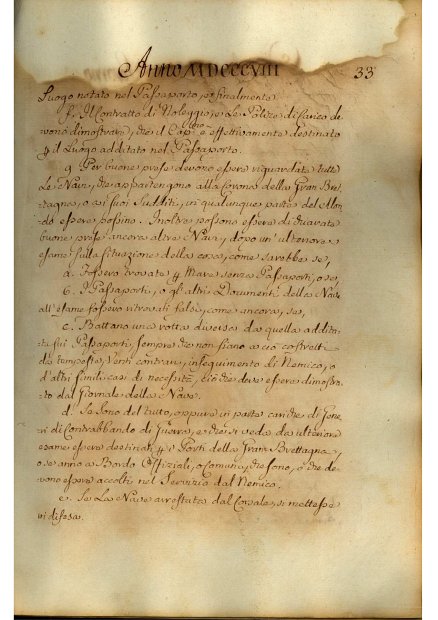 Anno MDCCCVIII
33
Luogo notato nel Passaporto, e finalmente
f. Il Contratto di Noleggio, e Le Polize di Carico de-
vono dimostrare, che il Cap:no è effettivamente destinato
p il Luogo additato nel Passaporto.
9 Per buone prese devono essere riguardate tutte
Le Navi, che appartengono alla Corona della Gran Bre-
tagna, o a' suoi Sudditi, in qualunque parte del Mon-
do essere possino. Inoltre possono essere dichiarate
buone prese ancora altre Navi, dopo un' ulteriore e-
same sulla situazione della cosa, come sarebbe se,
a. Fossero trovate p Mare senza Passaporti, o se,
b. I Passaporti, o gl'altri Documenti della Nave
all'esame fossero ritrovati falsi, come ancora, se,
c. Battano una rotta diversa da quella addita-
ta sui Passaporti, sempre che non siano a ciò costretti
da tempeste, Venti contrari, inseguimento di Nemico, o
d'altri simili casi di necessità, ciò che deve essere dimostra-
to dal Giornale della Nave.
d. Se sono del tutto, oppure in parte cariche di Gene-
ri di Contrabbando di Guerra, e che si veda da ulteriore
esame essere destinati p i Porti della Gran Brettagna,
o se anno a Bordo Offiziali, o Comuni, che sono, o che de-
vono essere accolti nel Servizio dal Nemico.
e. Se La Nave arrestata dal Corsale, si mettesse
in difesa.